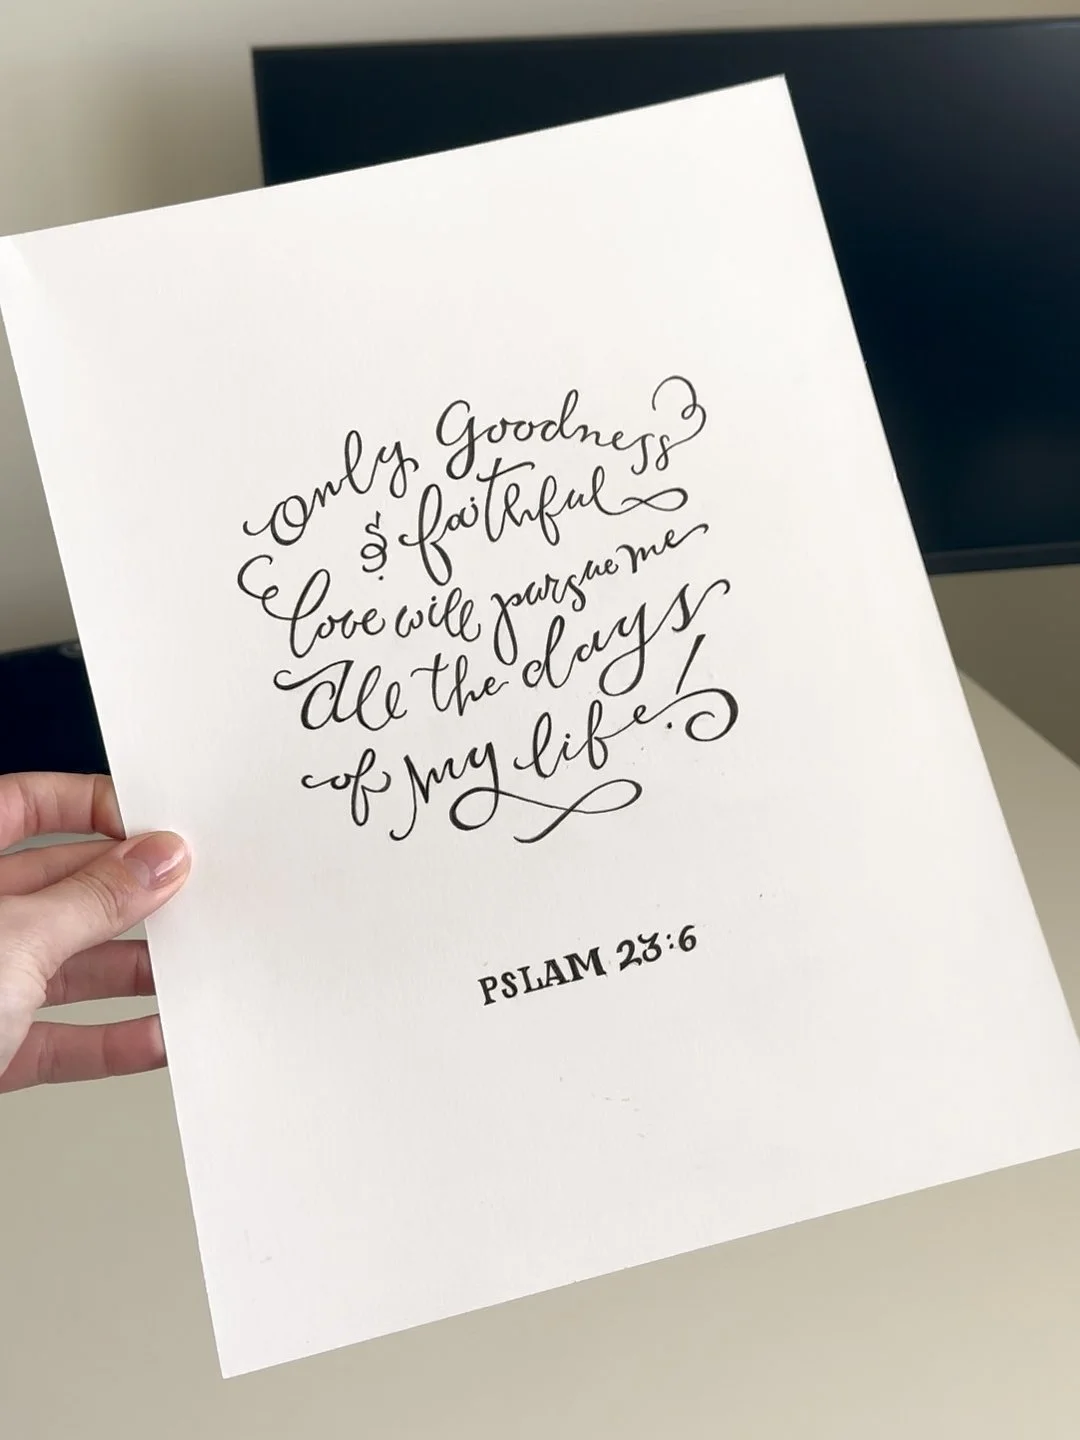 only Goodness
& faithful
love will pursue me
All the days
of my life!
PSLAM 23:6